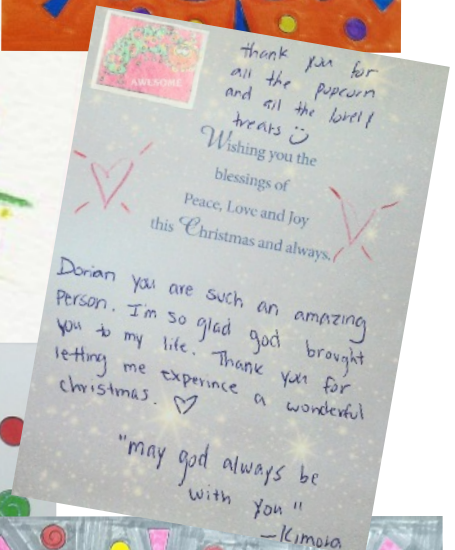 AWESOME
thank you for
all the popcorn
and all the lovely
treats
Wishing you the
blessings of
Peace, Love and Joy
this Christmas and always.
Dorian you are such an amazing
person. I'm so glad god brought
you to my life. Thank you for
letting me experince a wonderful
christmas.
"may god always be
with you"
-Kimora